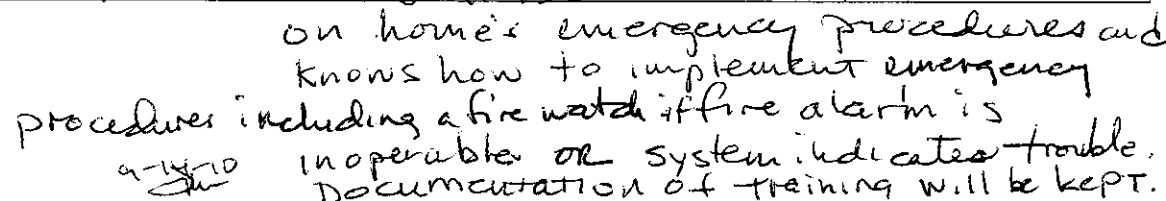 on home's emergency procedures and
knows how to implement emergency
procedures including a fire watch if fire alarm is
inoperable OR system indicates trouble.
9-14-10
Documentation of training will be kept.